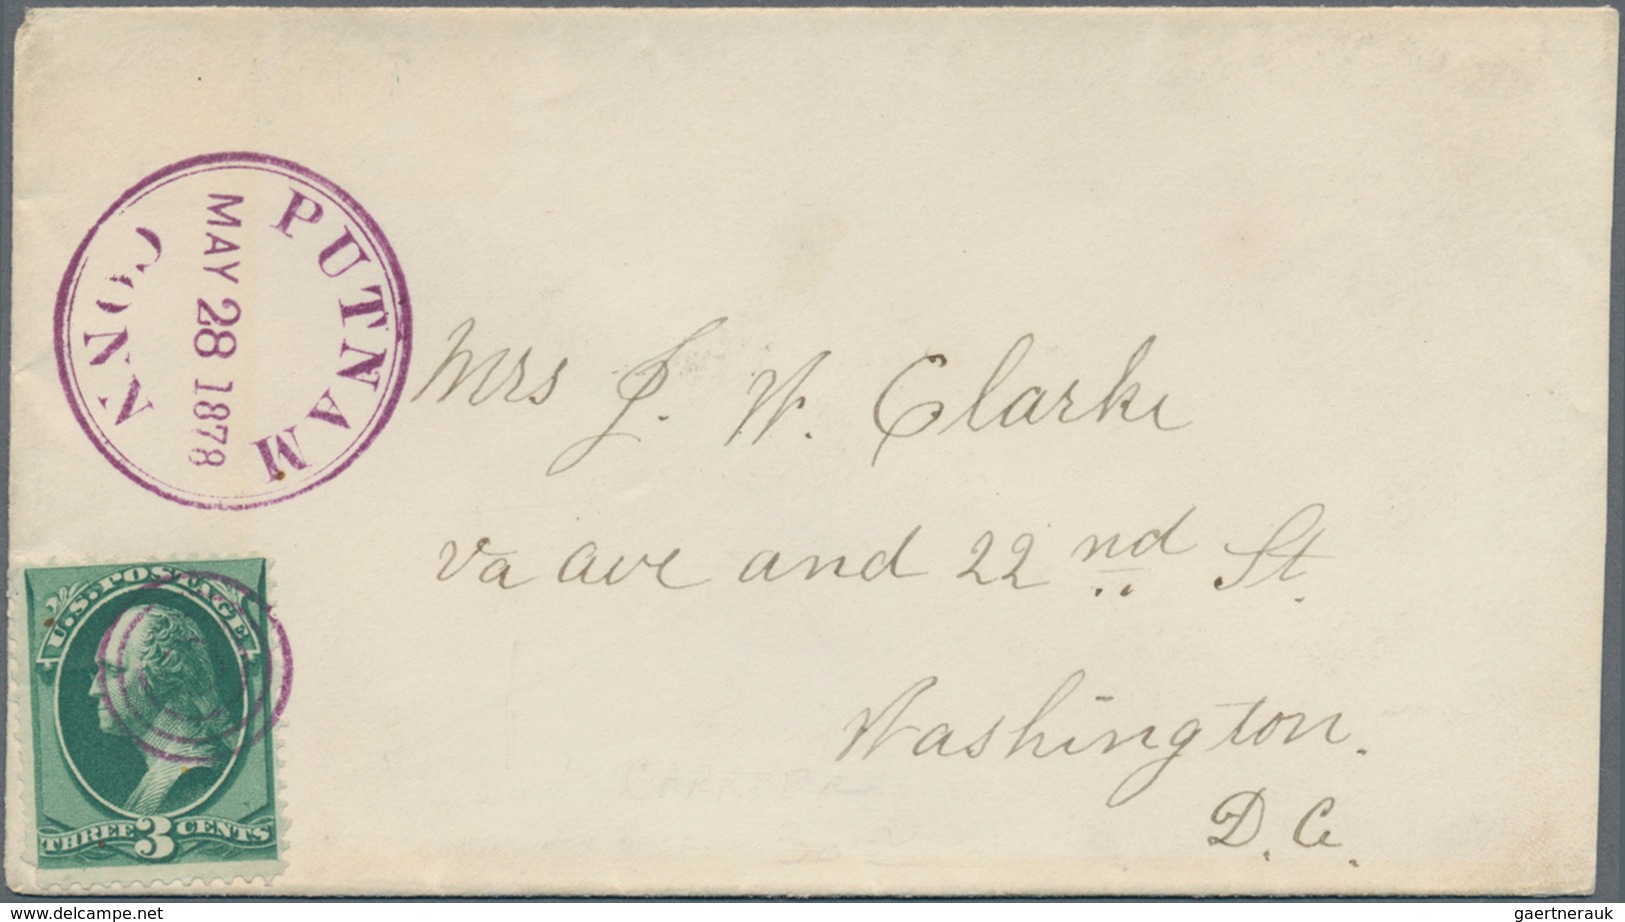 PUTNAM
MAY 28 1878
CONN
Mrs J. W. Clarke
Va ave and 22nd St.
Washington.
D. C.
U.S. POSTAGE
THREE 3 CENTS
© www.delcampe.net
gaertnerauk